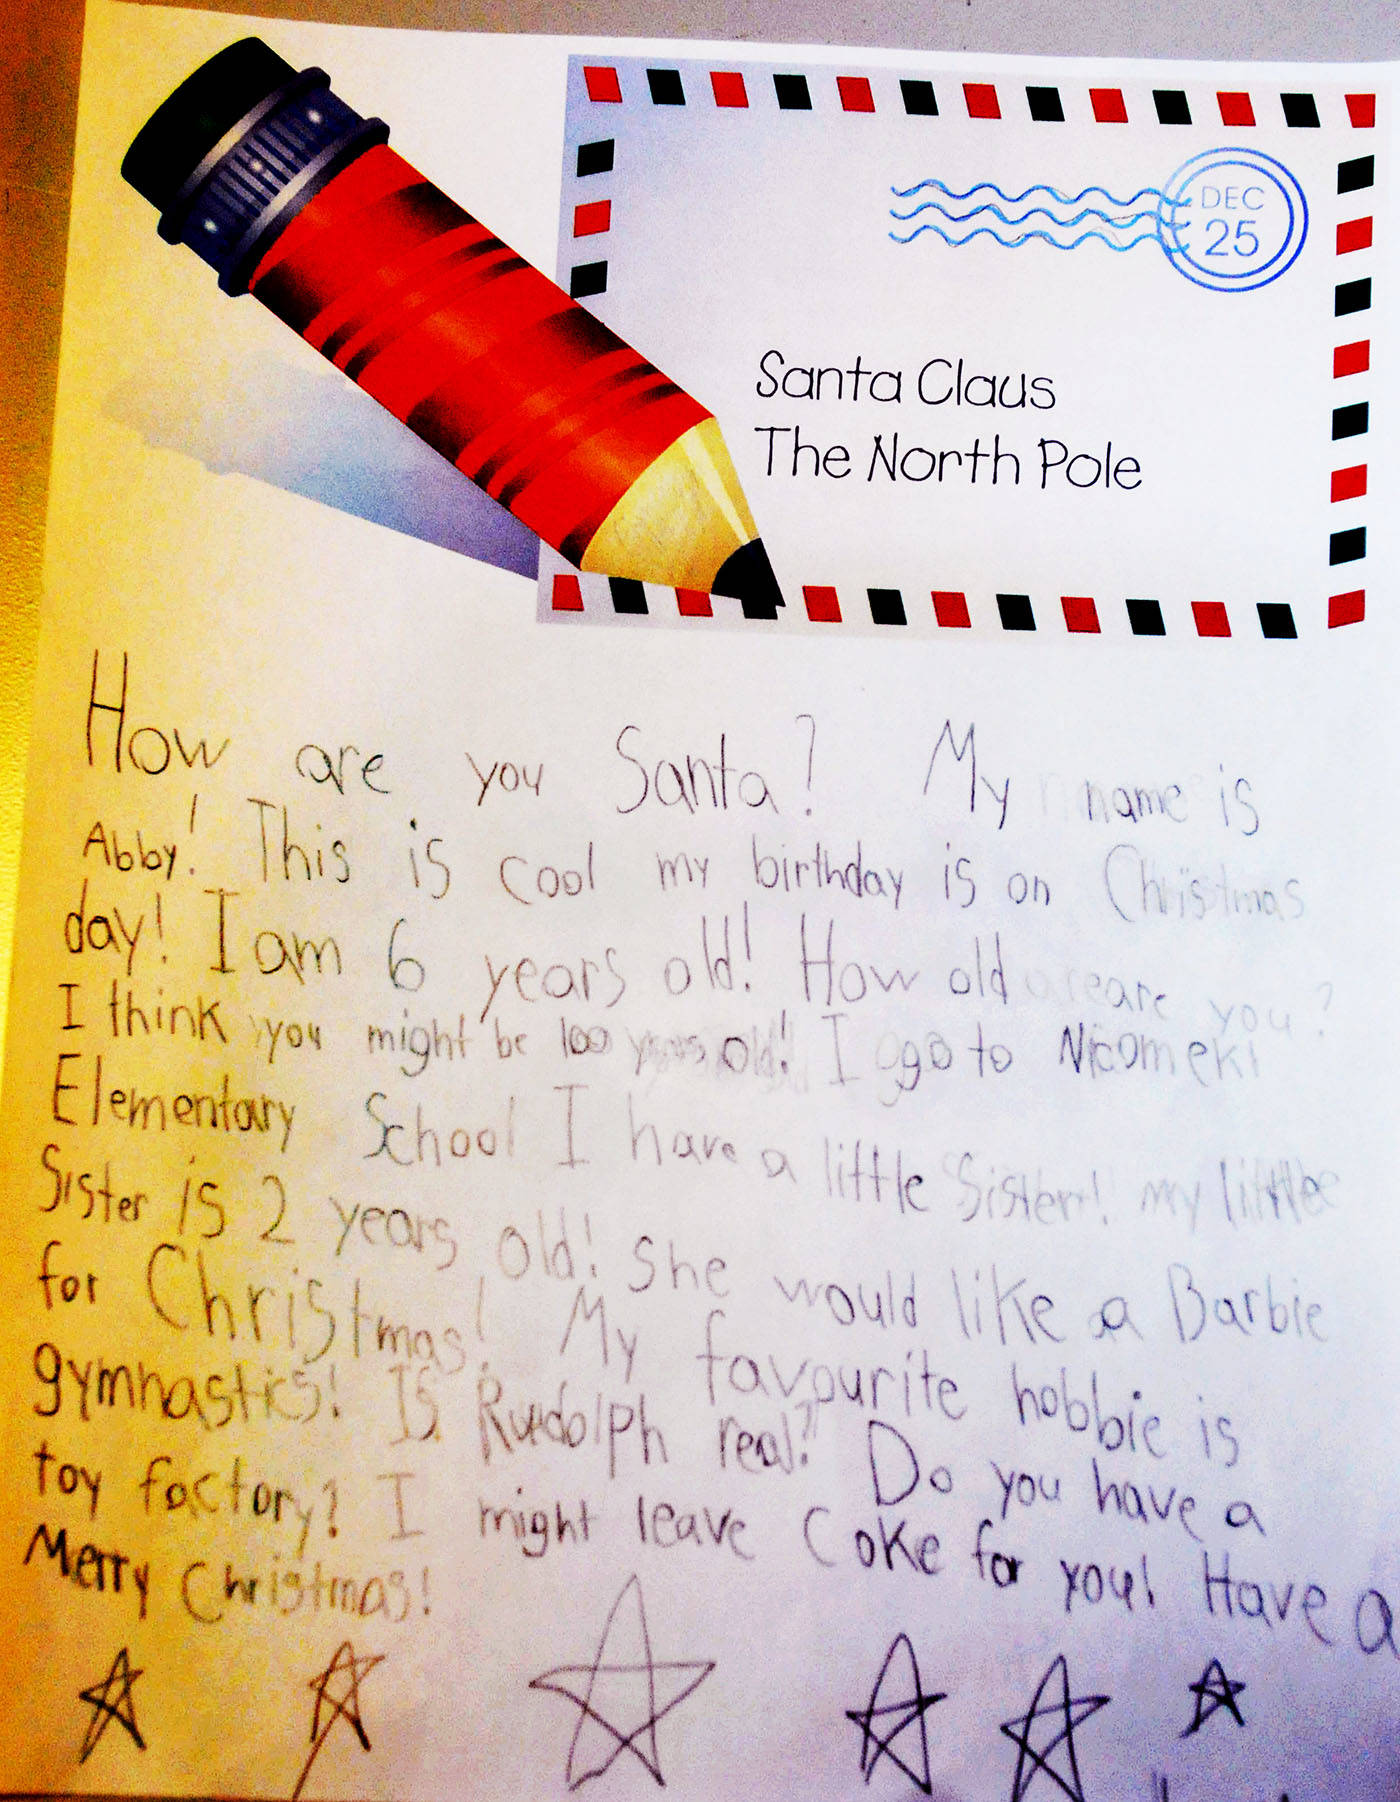 DEC
25
Santa Claus
The North Pole
How are you Santa? My name is
Abby! This is cool my birthday is on Christmas
day! I am 6 years old! How old are you?
I think you might be 100 years old! I go to Nicomekl
Elementary School I have a little Sister! my little
Sister is 2 years old! She would like a Barbie
for Christmas! My favourite hobbie is
gymnastics! Is Rudolph real? Do you have a
toy factory? I might leave Coke for you! Have a
Merry Christmas!